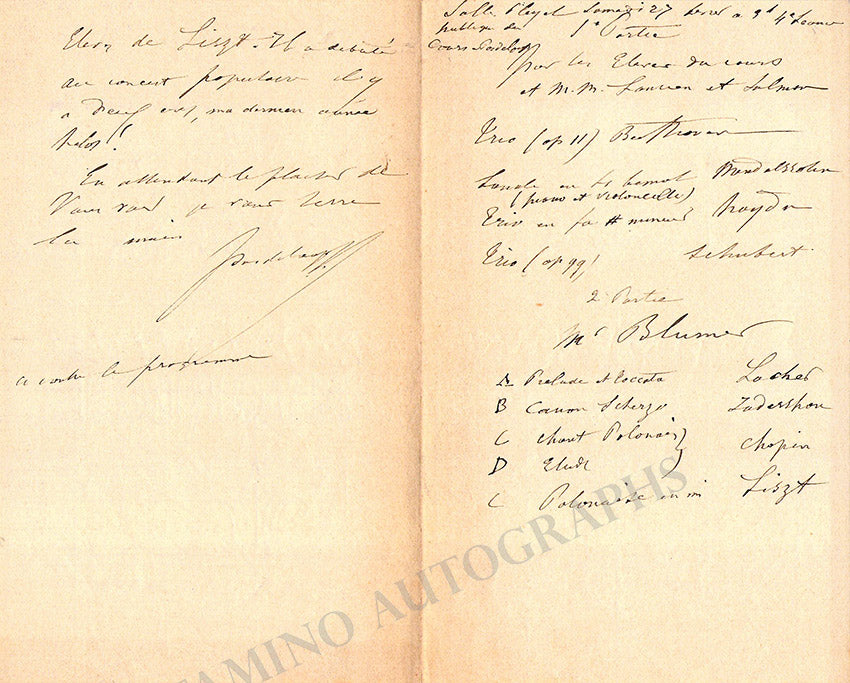 Eleve de Liszt. Il a debuté
au concert populaire il y
a deux ans, ma derniere année
helas!
En attendant le plaisir de
Vous voir je vous serre
la main
Pasdeloup
ci contre le programme
Salle Pleyel Samedi 27 4e Seance
publique du
Cours Pasdeloup
1e Partie
par les Eleves du cours
et M.M. et Salmon
Trio (op 11) Beethoven
Sonate en si bemol Mendelssohn
(piano et violoncelle)
Trio en fa # mineur Haydn
Trio (op 99) Schubert
2e Partie
Mr Blumer
A Prelude et Toccata Lachner
B Canon Scherzo Jadassohn
C Chant Polonais }
D Etude } Chopin
C Polonaise en mi Liszt
TAMINO AUTOGRAPHS